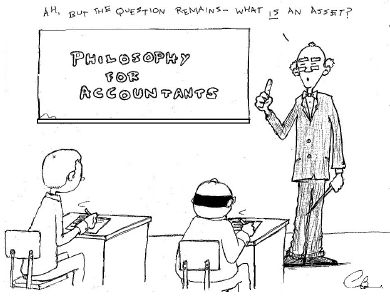 AH, BUT THE QUESTION REMAINS- WHAT IS AN ASSET?
PHILOSOPHY
FOR
ACCOUNTANTS